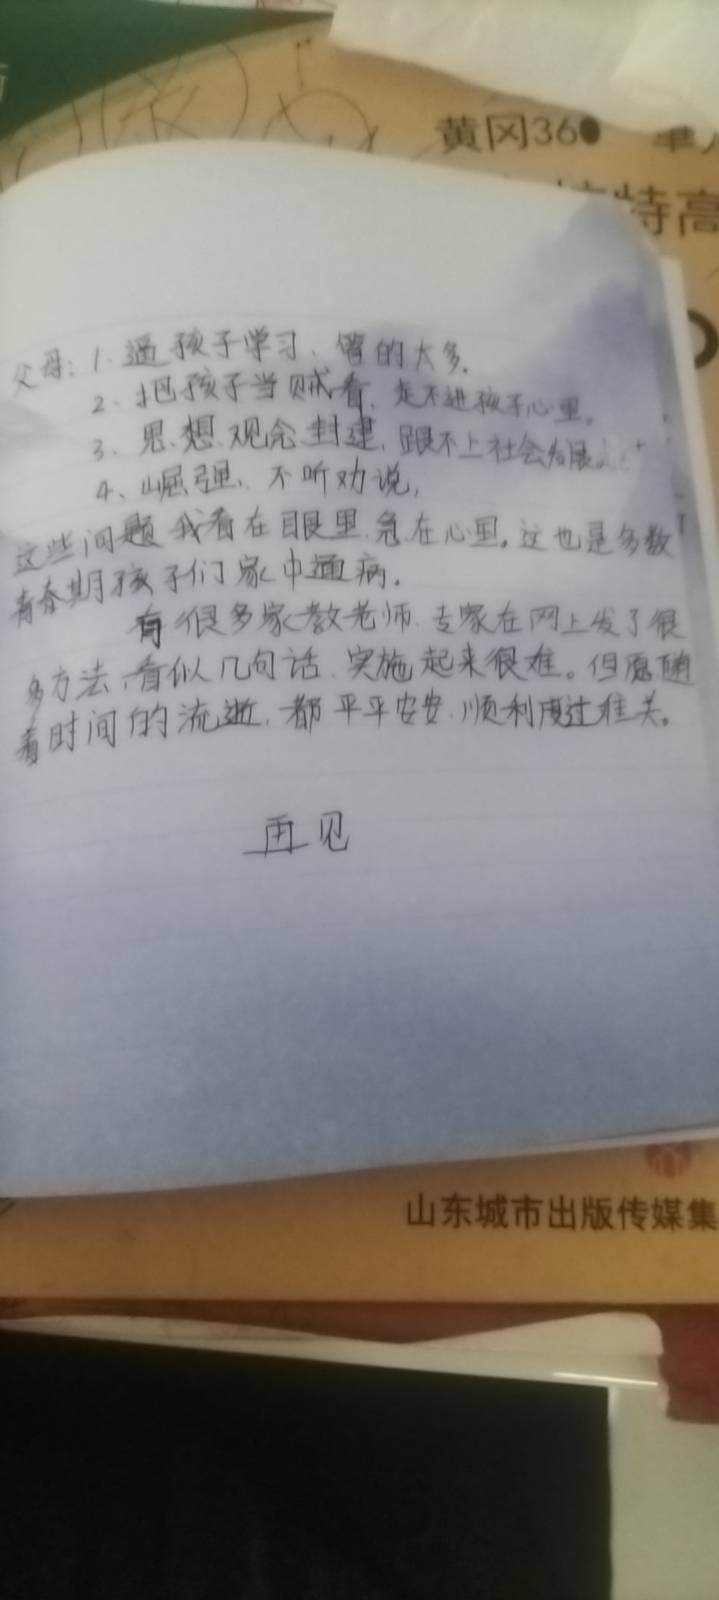 黄冈36
特高
父母：1.逼孩子学习、管的太多.
2、把孩子当贼看、走不进孩子心里。
3、思、想、观念、封建、跟不上社会发展
4、崛强、不听劝说，
这些问题我看在眼里、急在心里。这也是多数
青春期孩子们家中通病。
有很多家教老师、专家在网上发了很
多方法、看似几句话、实施起来很难。但愿随
着时间的流逝、都平平安安、顺利度过难关。
再见
山东城市出版传媒集